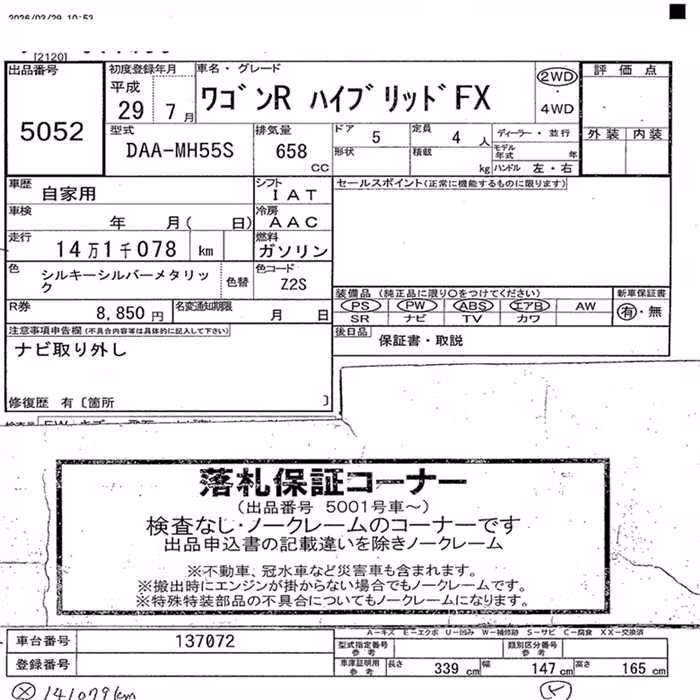 2026/03/29 10:53
[2120]
出品番号
5052
初度登録年月
平成
29 7 月
車名・グレード
ワゴンR ハイブリッドFX
2WD
4WD
評価点
外装 内装
型式
DAA-MH55S
排気量
658
CC
ドア 5
形状
定員 4 人
積載 kg
ディーラー・並行
モデル年式 年
ハンドル 左・右
車歴 自家用
シフト IAT
車検 年 月( 日)
冷房 AAC
走行 14万1千078 km
燃料 ガソリン
色 シルキーシルバーメタリック
色替
色コード Z2S
R券 8,850円
名変通知期限 月 日
セールスポイント(正常に機能するものに限ります)
装備品(純正品に限り○をつけてください)
PS PW ABS エアB AW
SR ナビ TV カワ
新車保証書
有・無
後日品 保証書・取説
注意事項申告欄(不具合内容等は具体的に記入して下さい)
ナビ取り外し
修復歴 有〔箇所 〕
落札保証コーナー
(出品番号 5001号車〜)
検査なし・ノークレームのコーナーです
出品申込書の記載違いを除きノークレーム
※不動車、冠水車など災害車も含まれます。
※搬出時にエンジンが掛からない場合でもノークレームです。
※特殊特装部品の不具合についてもノークレームになります。
A-キズ E-エクボ U-凹み W-補修跡 S-サビ C-腐食 XX-交換済
車台番号 137072
登録番号
型式指定番号 参考
類別区分番号 参考
車庫証明用 参考 長さ 339 cm 幅 147 cm 高さ 165 cm
141079km